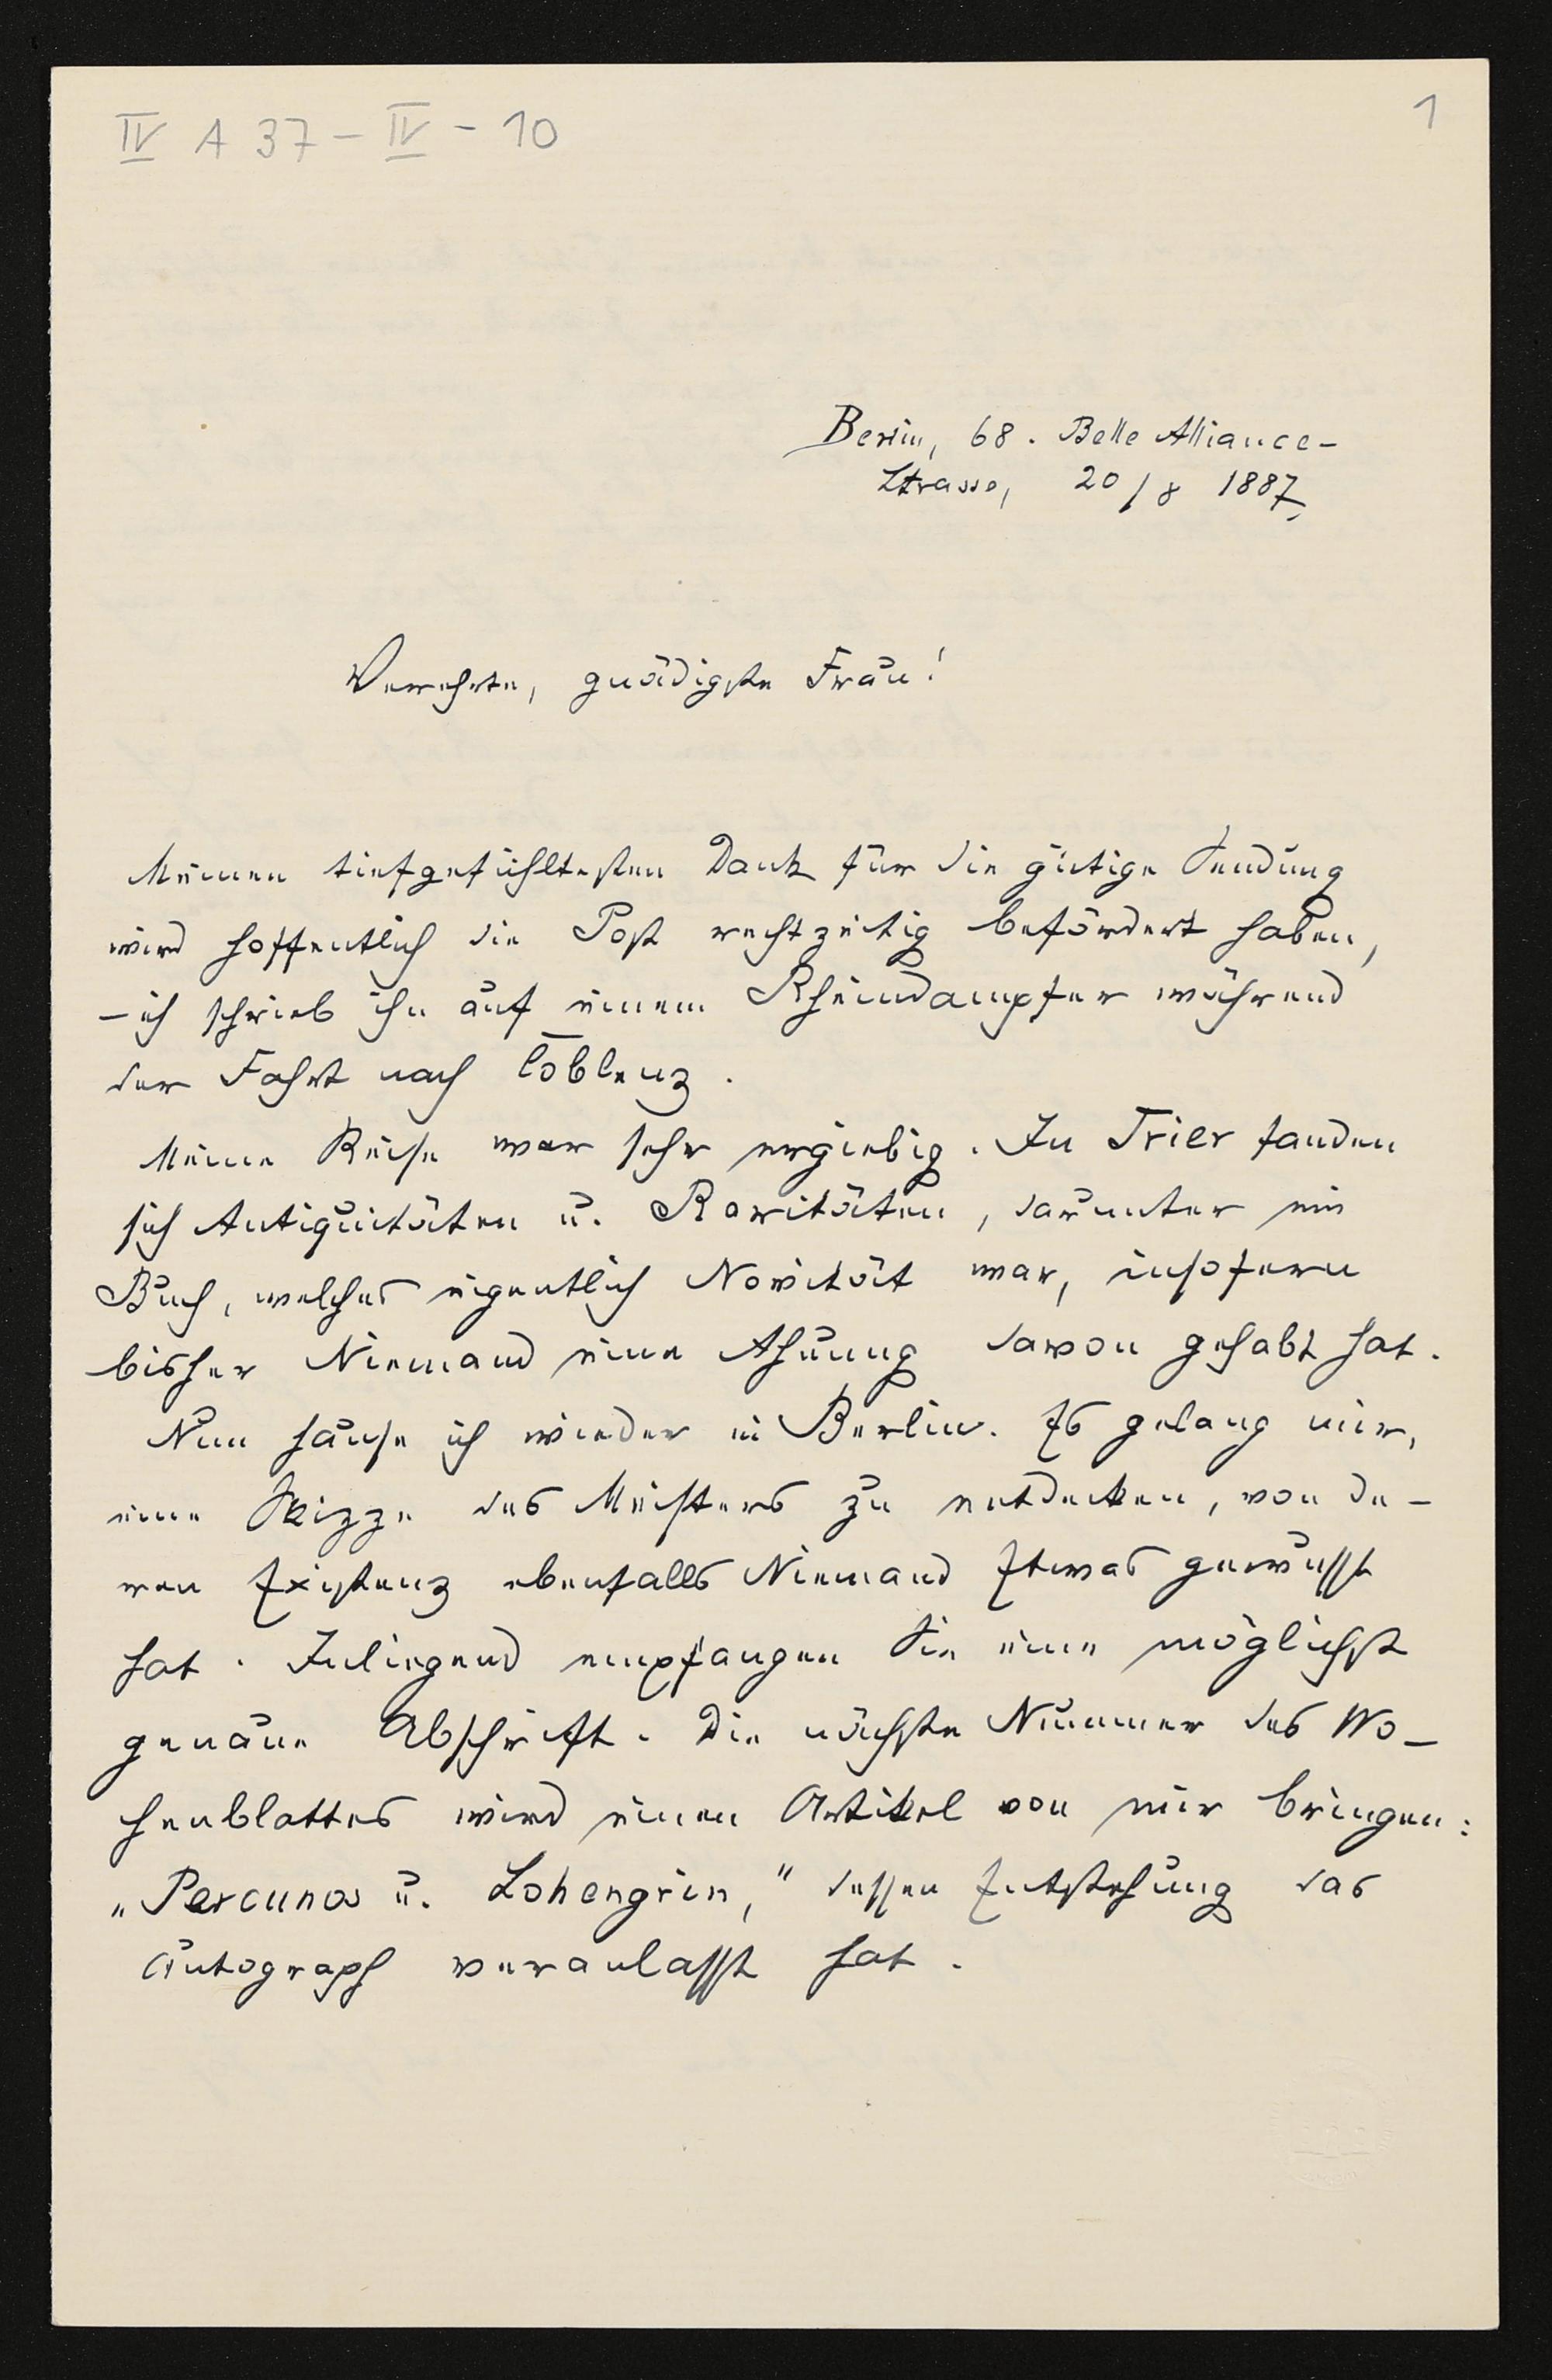 IV A 37 - IV - 10
1
Berlin, 68. Belle Alliance-
Strasse, 20/8 1887.
Verehrte, gnädigste Frau!
Meinen tiefgefühltesten Dank für die gütige Sendung
wird hoffentlich die Post rechtzeitig befördert haben,
– ich schrieb ihn auf einem Rheindampfer während
der Fahrt nach Coblenz.
Meine Reise war sehr ergiebig. In Trier fanden
sich Antiquitäten u. Raritäten, darunter ein
Buch, welches eigentlich Novität war, insofern
bisher Niemand eine Ahnung davon gehabt hat.
Nun hause ich wieder in Berlin. Es gelang mir,
eine Skizze des Meisters zu entdecken, von de-
ren Existenz ebenfalls Niemand Etwas gewusst
hat. Inliegend empfangen Sie eine möglichst
genaue Abschrift. Die nächste Nummer des Wo-
chenblattes wird einen Artikel von mir bringen:
„Percunos u. Lohengrin," dessen Entstehung das
Autograph veranlasst hat.